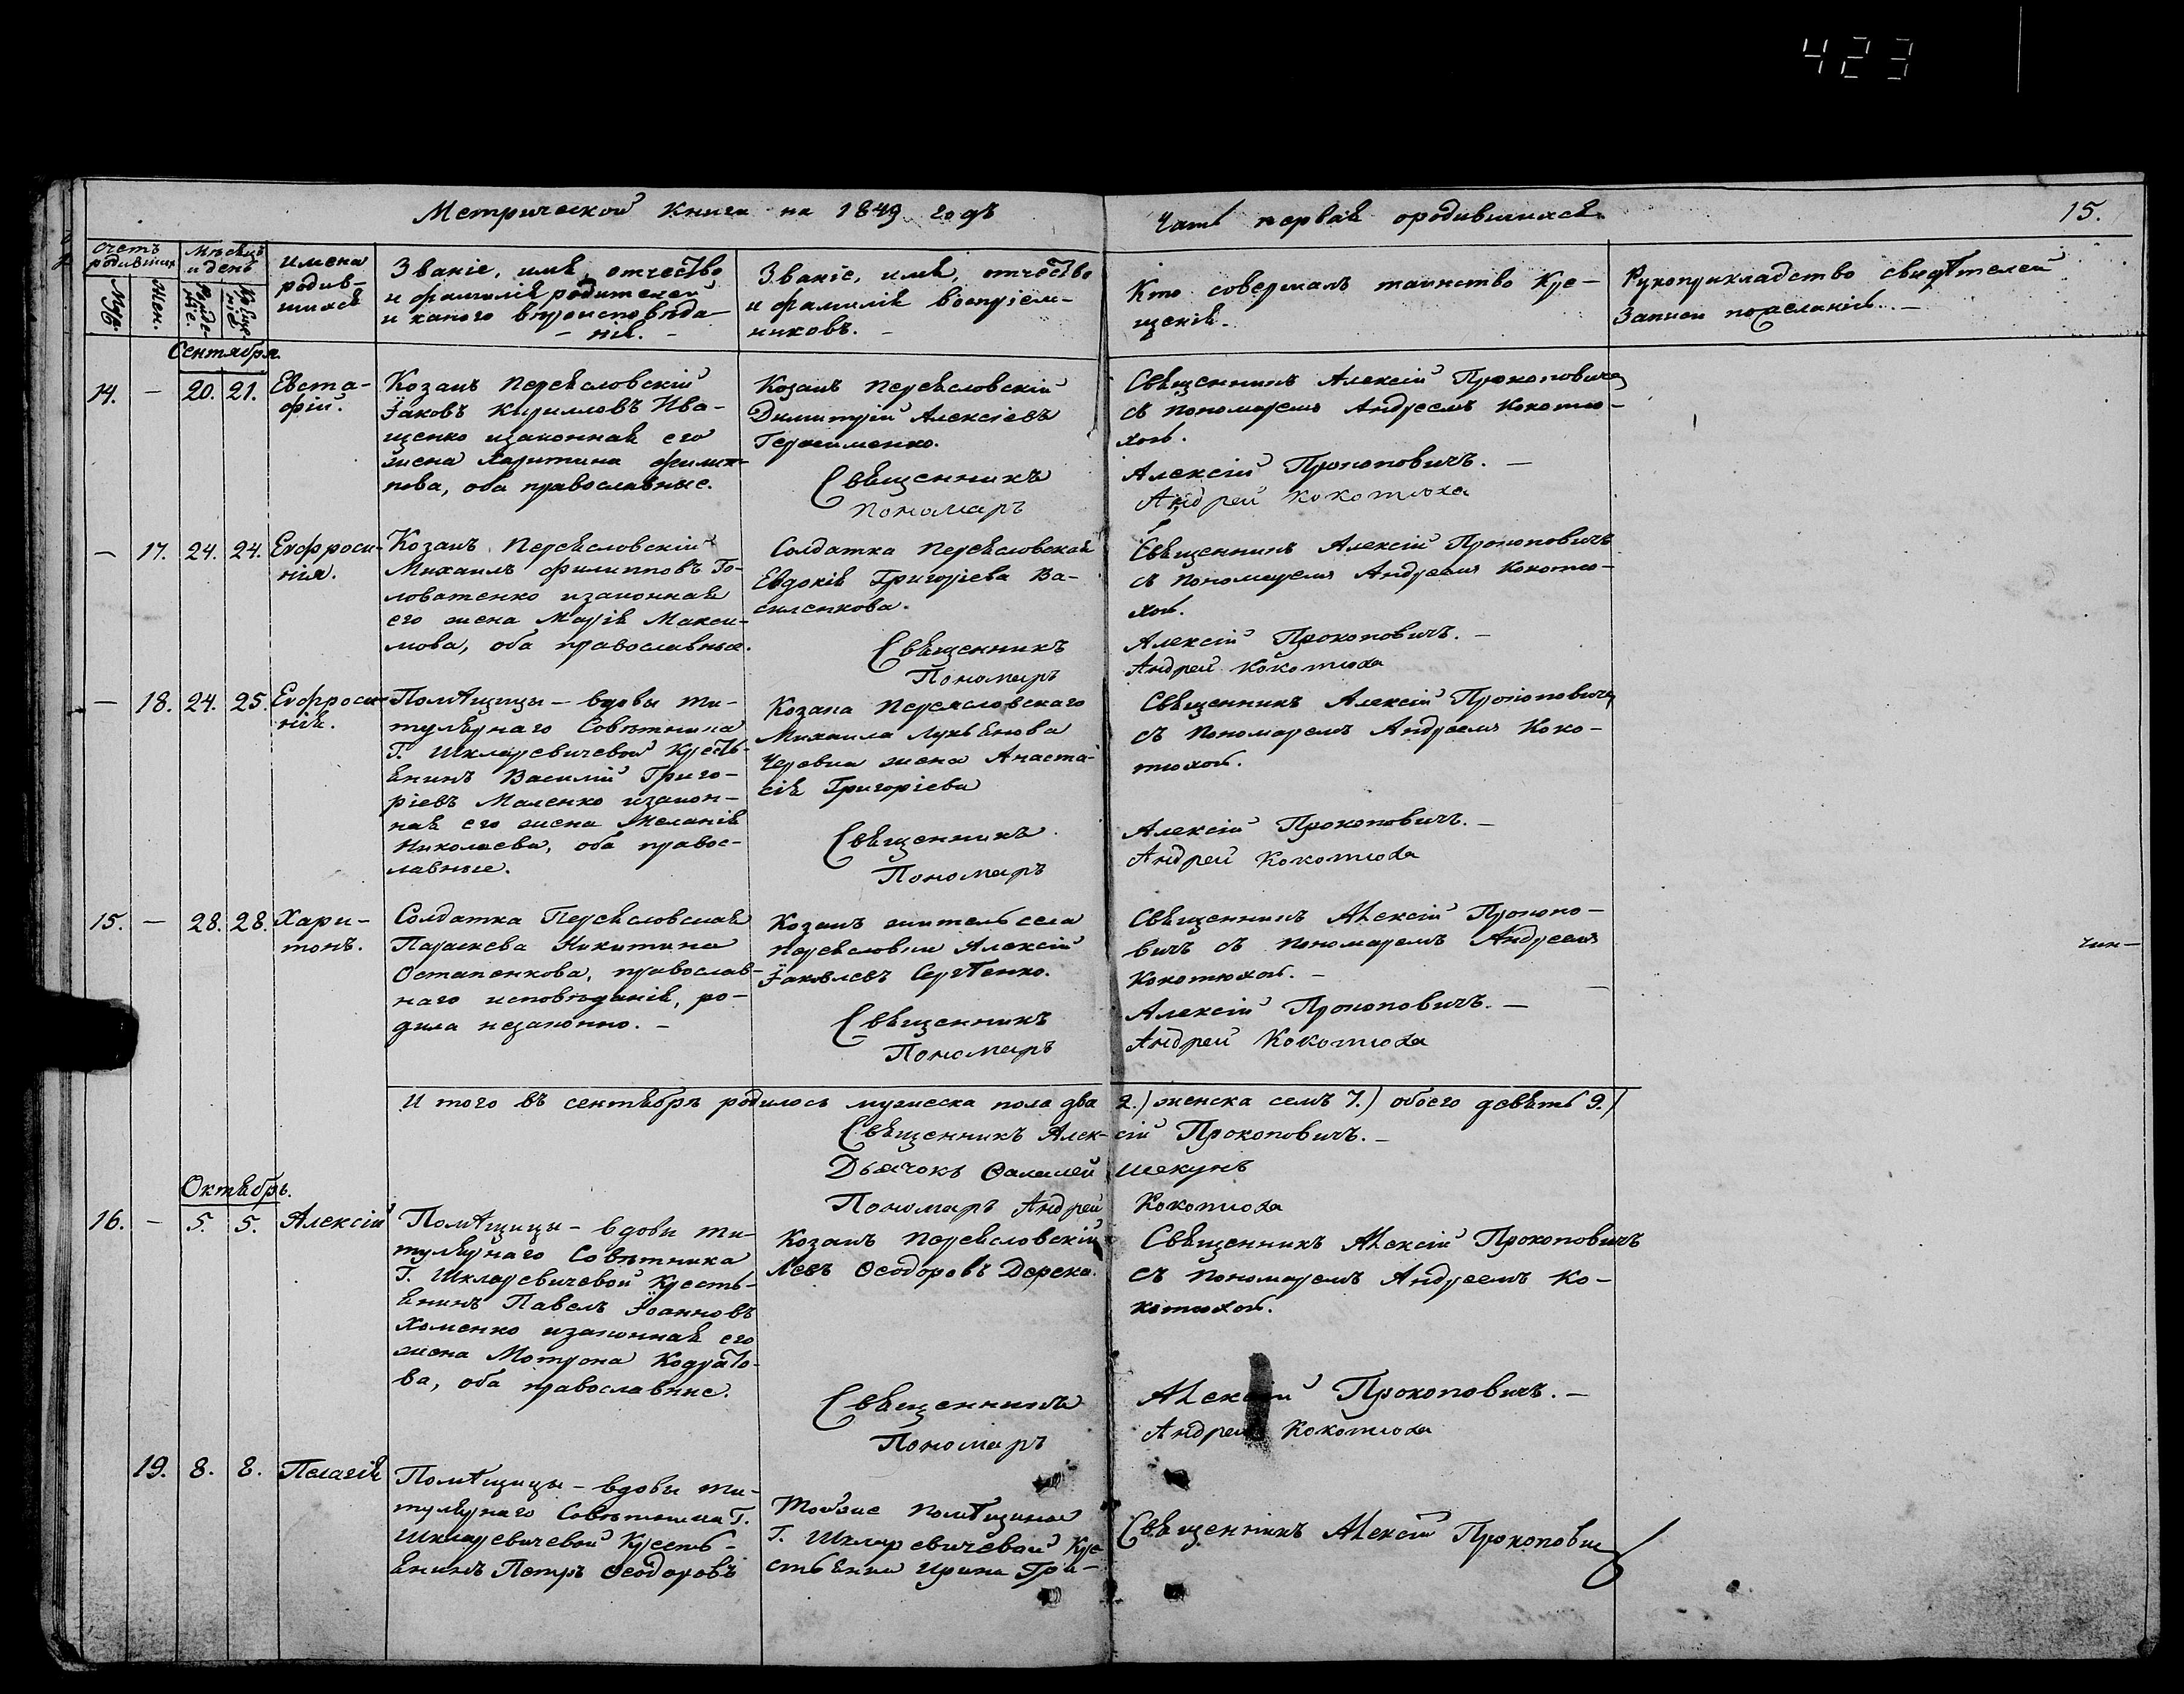 423
Метрической книги на 1849 годъ
Часть первая ородившихся.
15.
счетъ родившихся
Муж.
Жен.
Мѣсяцъ и день
Рожде-ніе.
Креще-ніе
имена родив-шихся
Званіе, имя, отчество
и фамилія родителей
и какого вѣроисповѣда-
- нія. -
Званіе, имя, отчество
и фамилія воспріем-
никовъ. -
Кто совершалъ таинство кре-
щенія.
Рукоприкладство свидѣтелей
Записи пожеланію. -
Сентября.
14. - 20. 21. Евста-
фій.
Козакъ Переясловскій
Іаковъ Кирилловъ Ива-
щенко изаконная его
жена Харитина Филип-
пова, оба православные.
Козакъ Переясловскій
Димитрій Алексіевъ
Герасименко.
Священникъ
Пономаръ
Священникъ Алексій Прокоповичъ
съ пономаремъ Андреемъ Кокотю-
хою.
Алексій Прокоповичъ. -
Андрей Кокотюха
- 17. 24. 24. Евфроси-
нія.
Козакъ Переясловскій
Михаилъ Филипповъ Го-
ловатенко изаконная
его жена Марія Макси-
мова, оба православные.
Солдатка Переясловская
Евдокія Григоріева Ва-
силенкова.
Священникъ
Пономаръ
Священникъ Алексій Прокоповичъ
съ пономаремъ Андреемъ Кокотю-
хою.
Алексій Прокоповичъ. -
Андрей Кокотюха
- 18. 24. 25. Евфроси-
нія.
Помѣщицы - вдовы ти-
тулярнаго Совѣтника
Г. Шкляревичевой Кресть-
янинъ Василій Григо-
ріевъ Маленко изакон-
ная его жена Меланія
Николаева, оба правос-
лавные.
Козака Переясловскаго
Михаила Лукьянова
Черевка жена Анаста-
сія Григоріева
Священникъ
Пономаръ
Священникъ Алексій Прокоповичъ
съ пономаремъ Андреемъ Коко-
тюхою.
Алексій Прокоповичъ. -
Андрей Кокотюха
15. - 28. 28. Хари-
тонъ.
Солдатка Переясловская
Параскева Никитина
Остапенкова, православ-
наго исповѣданія, ро-
дила незаконно. -
Козакъ житель села
Переясловки Алексій
Іаковлевъ Сергѣенко.
Священникъ
Пономаръ
Священникъ Алексій Прокопо-
вичъ съ пономаремъ Андреемъ
Кокотюхою. -
Алексій Прокоповичъ. -
Андрей Кокотюха
И того въ сентябрѣ родилось мужеска пола два 2.) женска семъ 7.) обоего девять 9.)
Священникъ Алек-сій Прокоповичъ. -
Дьячокъ Фалалей Шекунъ
Пономаръ Андрей Кокотюха
Октябрь.
16. - 5. 5. Алексій
Помѣщицы - вдовы ти-
тулярнаго Совѣтника
Г. Шкляревичевой Кресть-
янинъ Павелъ Іоанновъ
Хоменко изаконная его
жена Мотрона Кодрато-
ва, оба православные.
Козакъ Переясловскій
Левъ Феодоровъ Дерека.
Священникъ
Пономаръ
Священникъ Алексій Прокоповичъ
съ пономаремъ Андреемъ Ко-
котюхою.
Алексій Прокоповичъ. -
Андрей Кокотюха
19. 8. 8. Пелагія
Помѣщицы - вдовы ти-
тулярнаго Совѣтника Г.
Шкляревичевой Кресть-
янинъ Петръ Феодоровъ
Тойже Помѣщицы
Г. Шкляревичевой Кре-
стьянка Ирина Гри-
Священникъ Алексій Прокопович